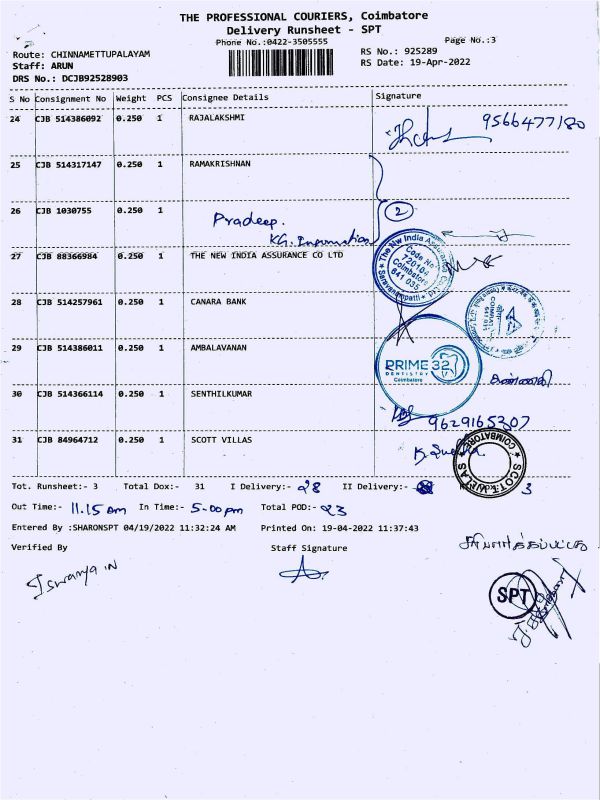 THE PROFESSIONAL COURIERS, Coimbatore
Delivery Runsheet - SPT
Phone No.:0422-3505555
Page No.:3
Route: CHINNAMETTUPALAYAM
Staff: ARUN
DRS No.: DCJB92528903
RS No.: 925289
RS Date: 19-Apr-2022
S No Consignment No Weight PCS Consignee Details Signature
24 CJB 514386092 0.250 1 RAJALAKSHMI
9566477180
25 CJB 514317147 0.250 1 RAMAKRISHNAN
26 CJB 1030755 0.250 1
Pradeep.
KG. Information
2
27 CJB 88366984 0.250 1 THE NEW INDIA ASSURANCE CO LTD
The New India Assurance Co Ltd
Code No
Coimbatore
641 035
Saravanampatti
28 CJB 514257961 0.250 1 CANARA BANK
29 CJB 514386011 0.250 1 AMBALAVANAN
PRIME 32
DENTISTRY
Coimbatore
30 CJB 514366114 0.250 1 SENTHILKUMAR
9629165307
31 CJB 84964712 0.250 1 SCOTT VILLAS
SCOTT VILLAS
COIMBATORE
Tot. Runsheet:- 3 Total Dox:- 31 I Delivery:- 28 II Delivery:- 3
Out Time:- 11.15 am In Time:- 5-00 pm Total POD:- 23
Entered By :SHARONSPT 04/19/2022 11:32:24 AM Printed On: 19-04-2022 11:37:43
Verified By Staff Signature
Iswarya N
SPT